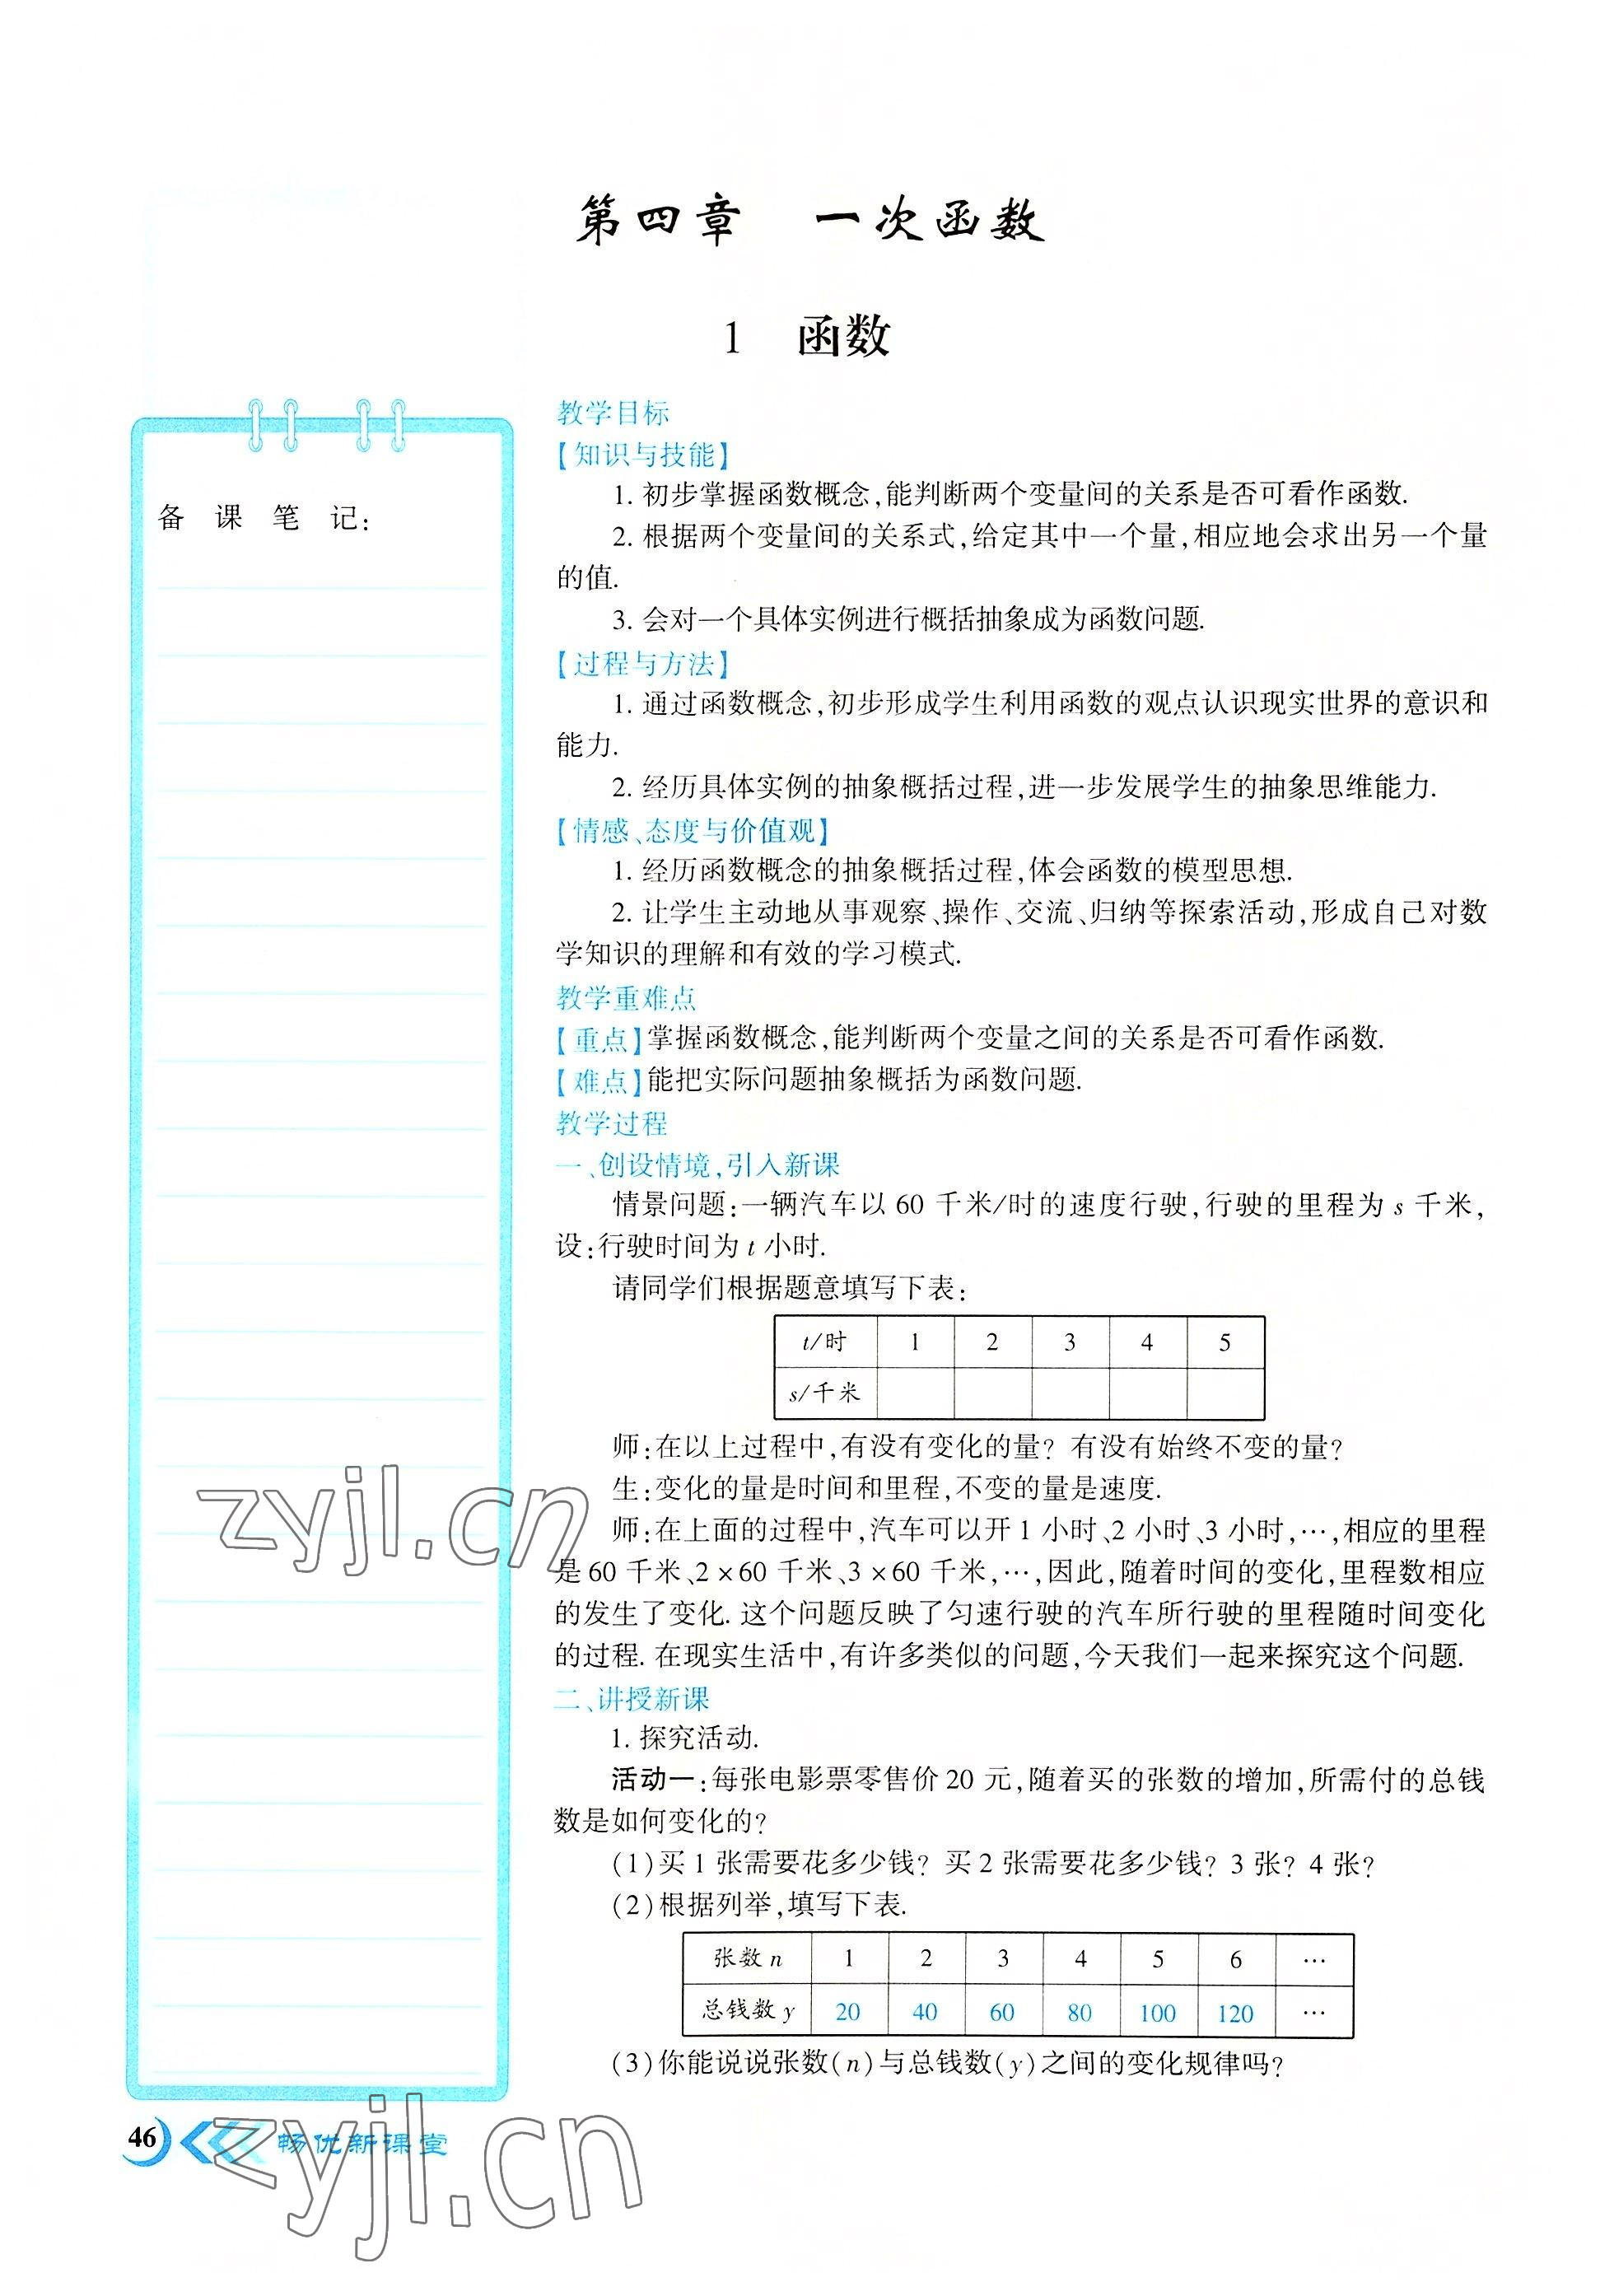 第四章 一次函数
1 函数
备课笔记:
教学目标
【知识与技能】
1. 初步掌握函数概念,能判断两个变量间的关系是否可看作函数.
2. 根据两个变量间的关系式,给定其中一个量,相应地会求出另一个量
的值.
3. 会对一个具体实例进行概括抽象成为函数问题.
【过程与方法】
1. 通过函数概念,初步形成学生利用函数的观点认识现实世界的意识和
能力.
2. 经历具体实例的抽象概括过程,进一步发展学生的抽象思维能力.
【情感、态度与价值观】
1. 经历函数概念的抽象概括过程,体会函数的模型思想.
2. 让学生主动地从事观察、操作、交流、归纳等探索活动,形成自己对数
学知识的理解和有效的学习模式.
教学重难点
【重点】掌握函数概念,能判断两个变量之间的关系是否可看作函数.
【难点】能把实际问题抽象概括为函数问题.
教学过程
一、创设情境,引入新课
情景问题:一辆汽车以 60 千米/时的速度行驶,行驶的里程为 s 千米,
设:行驶时间为 t 小时.
请同学们根据题意填写下表:
t/时 1 2 3 4 5
s/千米
师:在以上过程中,有没有变化的量? 有没有始终不变的量?
生:变化的量是时间和里程,不变的量是速度.
师:在上面的过程中,汽车可以开 1 小时、2 小时、3 小时,…,相应的里程
是 60 千米、2×60 千米、3×60 千米,…,因此,随着时间的变化,里程数相应
的发生了变化. 这个问题反映了匀速行驶的汽车所行驶的里程随时间变化
的过程. 在现实生活中,有许多类似的问题,今天我们一起来探究这个问题.
二、讲授新课
1. 探究活动.
活动一:每张电影票零售价 20 元,随着买的张数的增加,所需付的总钱
数是如何变化的?
(1)买 1 张需要花多少钱? 买 2 张需要花多少钱? 3 张? 4 张?
(2)根据列举,填写下表.
张数 n 1 2 3 4 5 6 …
总钱数 y 20 40 60 80 100 120 …
(3)你能说说张数(n)与总钱数(y)之间的变化规律吗?
46 畅优新课堂
zyjl.cn
zyjl.cn